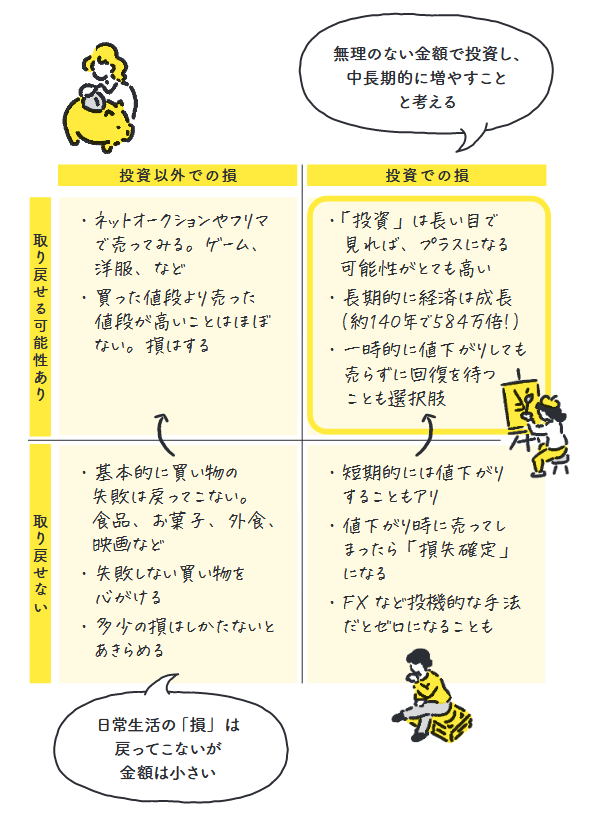 無理のない金額で投資し、
中長期的に増やすこと
と考える
投資以外での損
投資での損
取り戻せる可能性あり
・ネットオークションやフリマ
で売ってみる。ゲーム、
洋服、など
・買った値段より売った
値段が高いことはほぼ
ない。損はする
・「投資」は長い目で
見れば、プラスになる
可能性がとても高い
・長期的に経済は成長
(約140年で584万倍!)
・一時的に値下がりしても
売らずに回復を待つ
ことも選択肢
取り戻せない
・基本的に買い物の
失敗は戻ってこない。
食品、お菓子、外食、
映画など
・失敗しない買い物を
心がける
・多少の損はしかたないと
あきらめる
・短期的には値下がり
することもアリ
・値下がり時に売ってし
まったら「損失確定」
になる
・FXなど投機的な手法
だとゼロになることも
日常生活の「損」は
戻ってこないが
金額は小さい